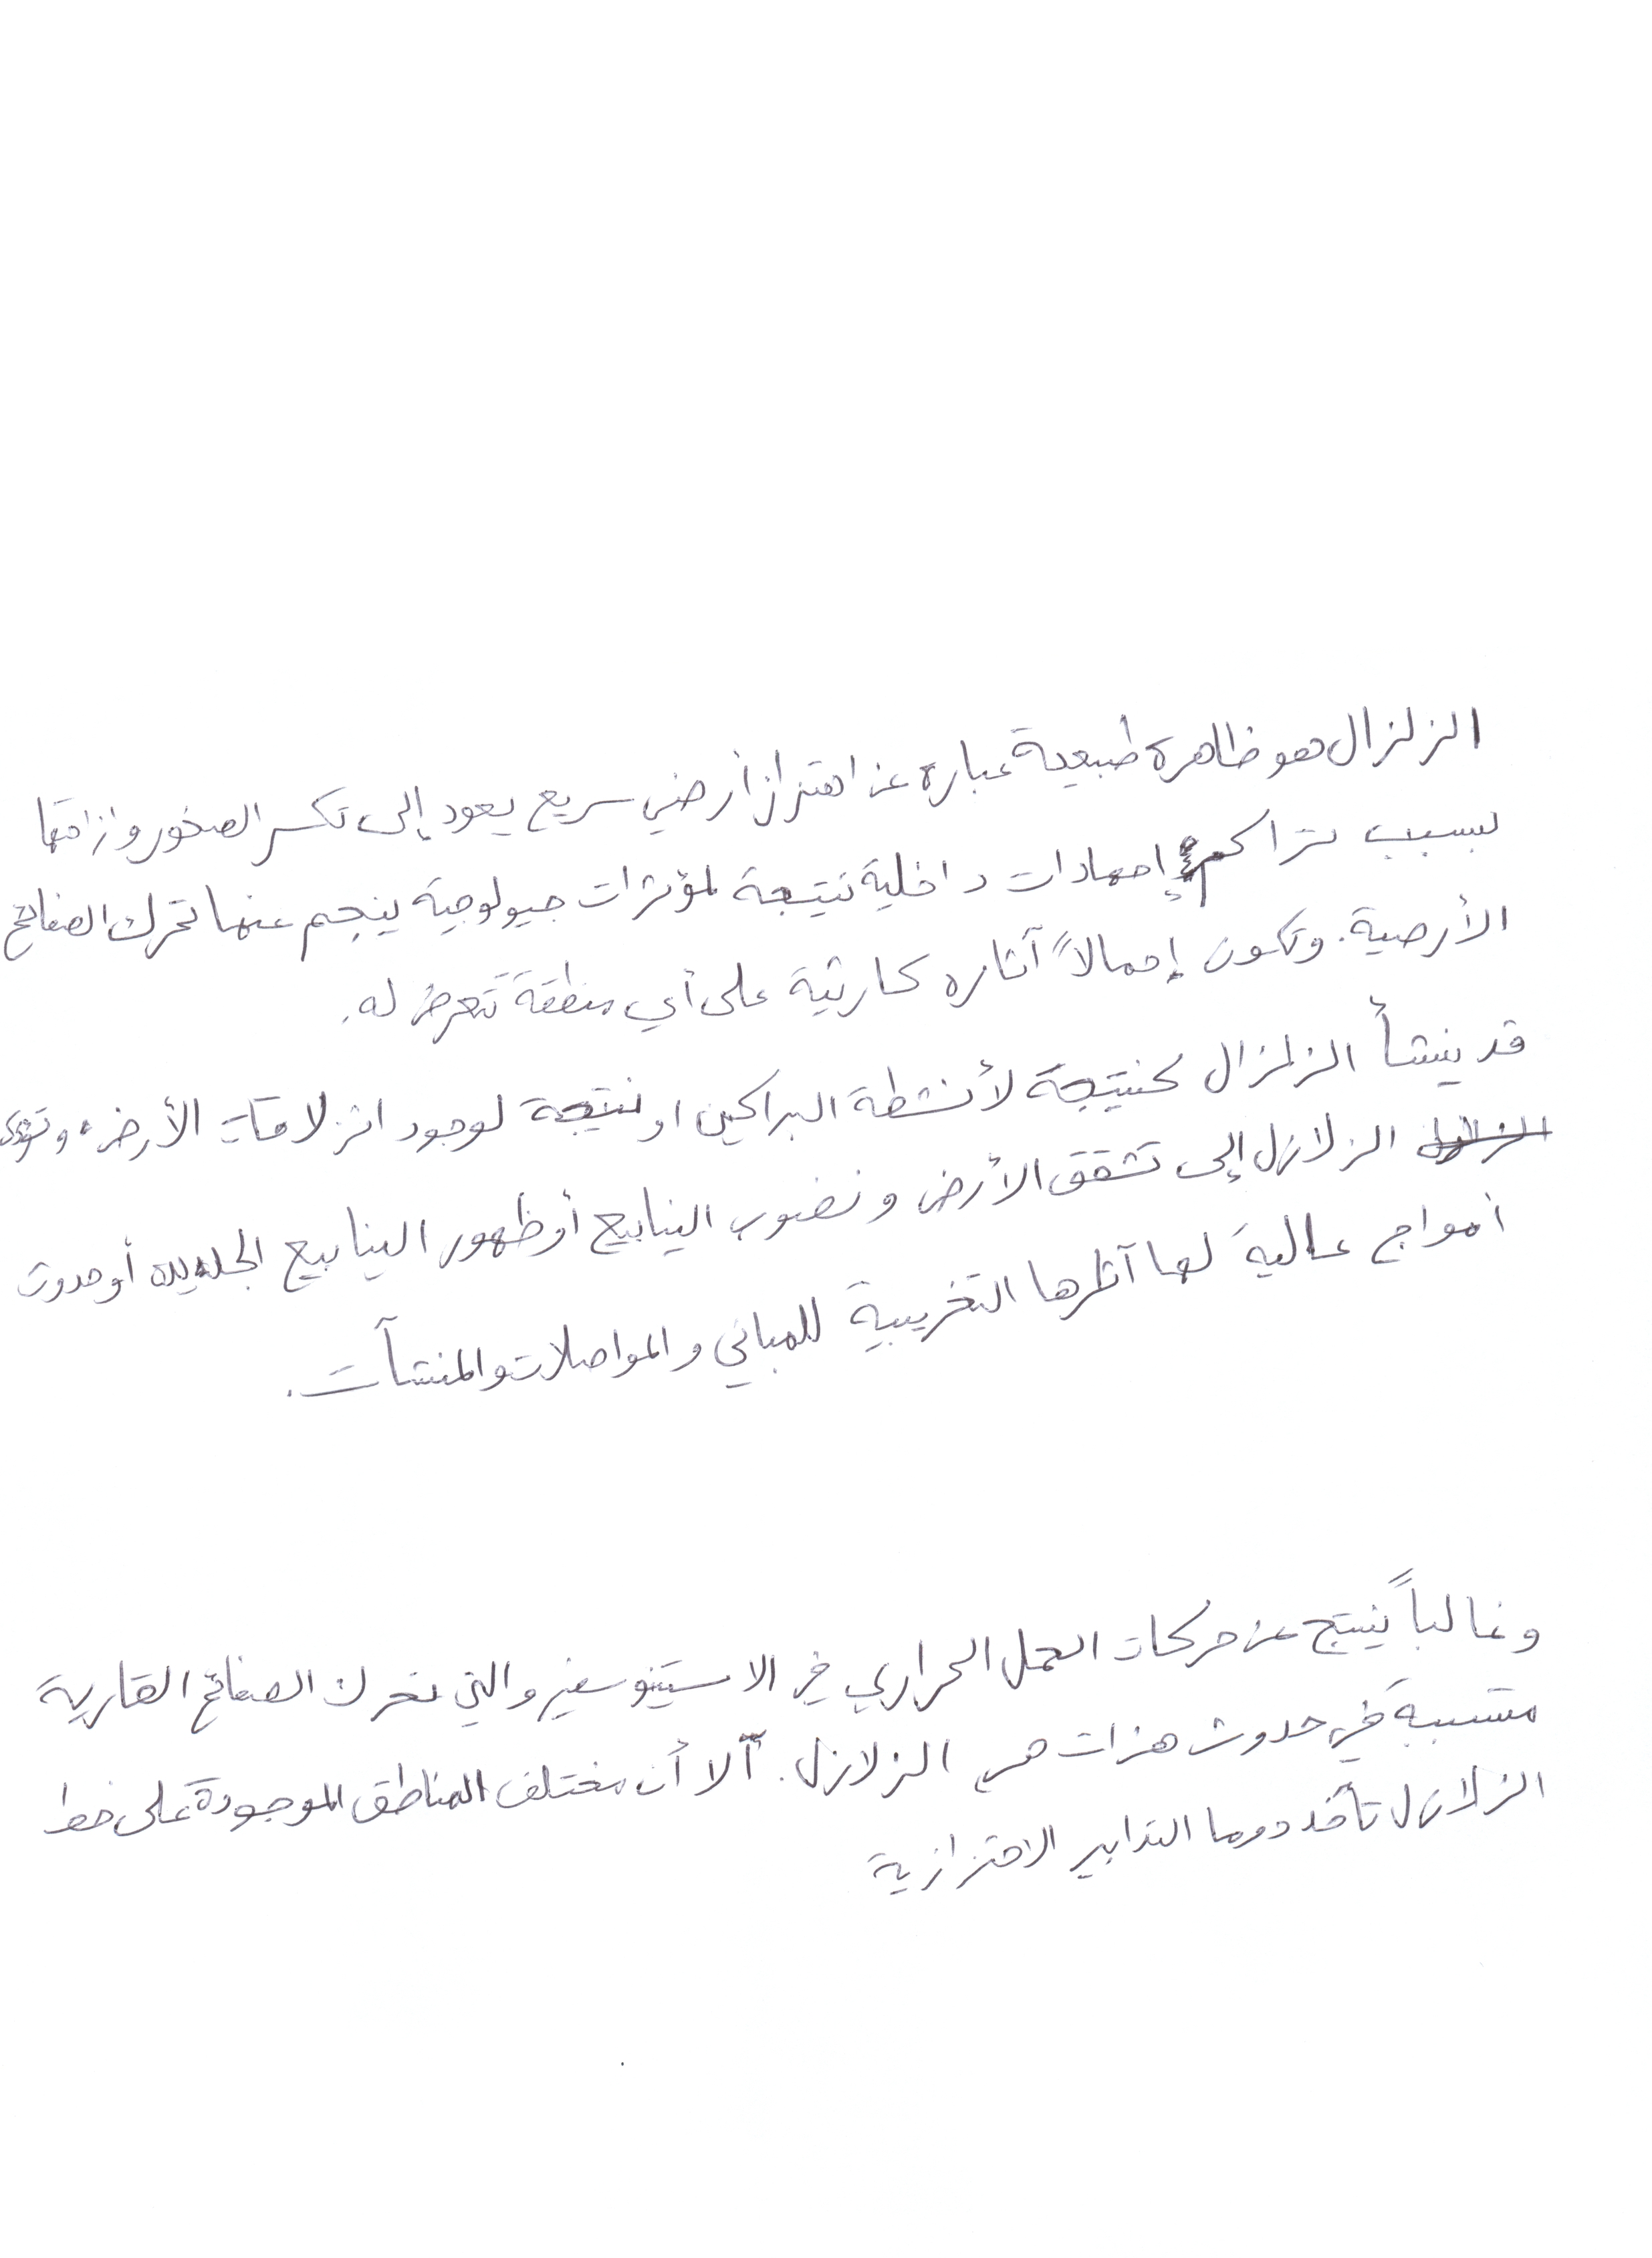 الزلزال هو ظاهرة طبيعية عبارة عن اهتزاز أرضي سريع يعود إلى تكسر الصخور وإزاحتها
بسبب تراكم إجهادات داخلية نتيجة لمؤثرات جيولوجية ينجم عنها تحرك الصفائح
الأرضية. وتكون إجمالاً آثاره كارثية على أي منطقة تتعرض له.
قد ينشأ الزلزال كنتيجة لأنشطة البراكين او نتيجة لوجود انزلاقات الأرض. وتؤدي
الزلازل إلى تشقق الأرض ونضوب الينابيع أو ظهور الينابيع الجديدة أو حدوث
أمواج عالية لها آثارها التخريبية للمباني والمواصلات والمنشآت.
وغالباً ينتج عن حركات الحمل الحراري في الاستينوسفير والتي تحرك الصفائح القارية
متسببة في حدوث هزات هي الزلازل. ألا أن مختلف المناطق الموجودة على خط
الزلازل تأخذ دوما التدابير الاحترازية